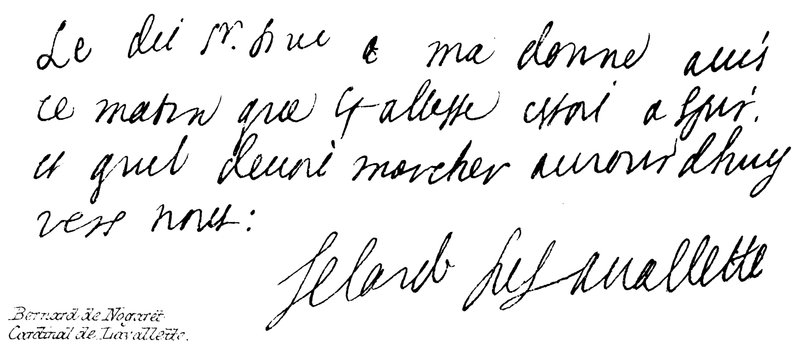 Le dit Sr. Duc a ma donne auis
ce matin que Gallasse estoi a Spir.
et quel deuoi marcher auiourdhuy
vers nous:
le Card de la Vallette
Bernard de Nogaret
Cardinal de Lavallette.